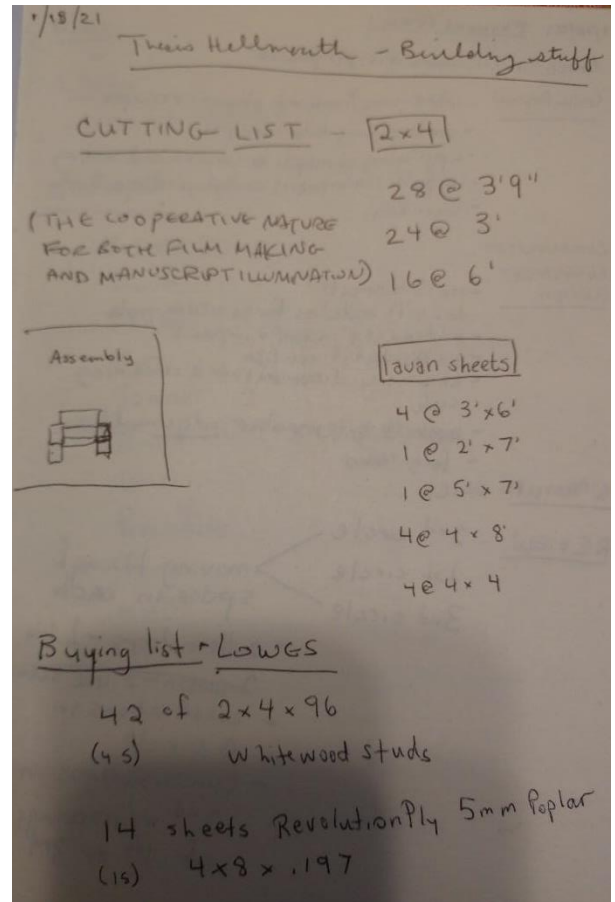 1/18/21
Thesis Hellmouth - Building stuff
CUTTING LIST - 2x4
28 @ 3'9"
(THE COOPERATIVE NATURE
24 @ 3'
FOR BOTH FILM MAKING
AND MANUSCRIPT ILLUMINATION)
16 @ 6'
Assembly
lauan sheets
4 @ 3'x6'
1 @ 2' x 7'
1 @ 5' x 7'
4 @ 4 x 8'
4 @ 4 x 4
Buying list - LOWES
42 of 2x4x96
(45) Whitewood studs
14 sheets RevolutionPly 5mm Poplar
(15) 4x8x.197